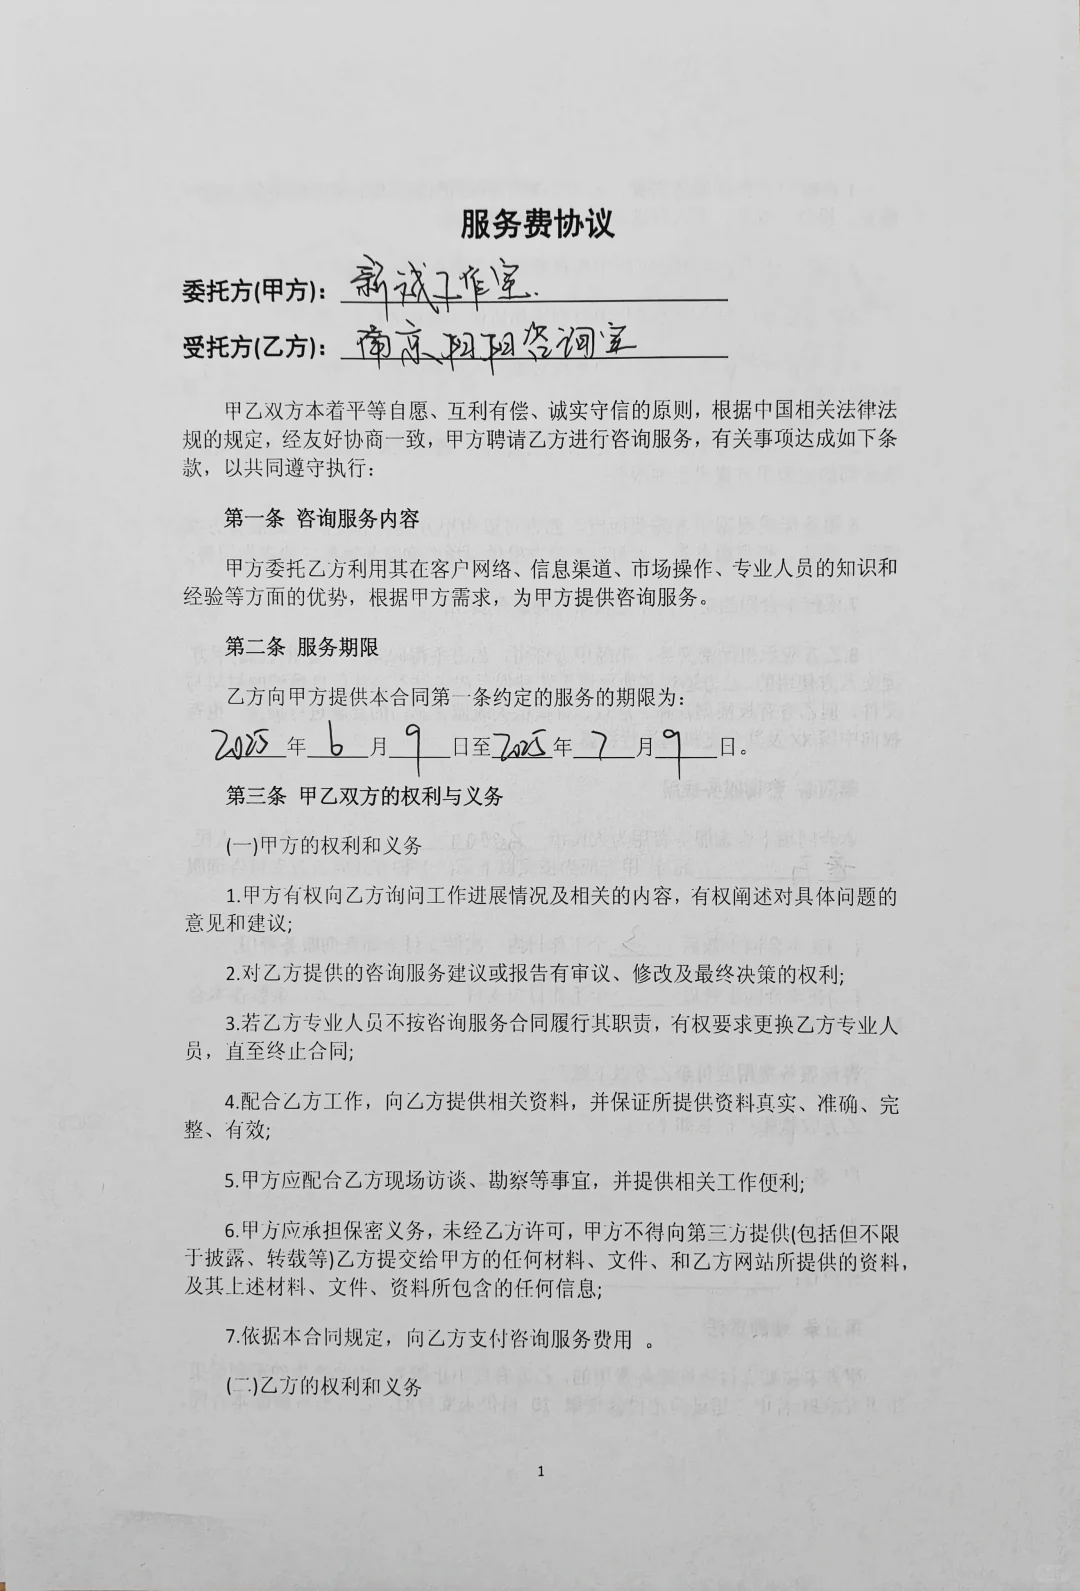 服务费协议
委托方(甲方)：新诚工作室
受托方(乙方)：南京阳阳咨询室
甲乙双方本着平等自愿、互利有偿、诚实守信的原则，根据中国相关法律法
规的规定，经友好协商一致，甲方聘请乙方进行咨询服务，有关事项达成如下条
款，以共同遵守执行：
第一条 咨询服务内容
甲方委托乙方利用其在客户网络、信息渠道、市场操作、专业人员的知识和
经验等方面的优势，根据甲方需求，为甲方提供咨询服务。
第二条 服务期限
乙方向甲方提供本合同第一条约定的服务的期限为：
2025年6月9日至2025年7月9日。
第三条 甲乙双方的权利与义务
(一)甲方的权利和义务
1.甲方有权向乙方询问工作进展情况及相关的内容，有权阐述对具体问题的
意见和建议;
2.对乙方提供的咨询服务建议或报告有审议、修改及最终决策的权利;
3.若乙方专业人员不按咨询服务合同履行其职责，有权要求更换乙方专业人
员，直至终止合同;
4.配合乙方工作，向乙方提供相关资料，并保证所提供资料真实、准确、完
整、有效;
5.甲方应配合乙方现场访谈、勘察等事宜，并提供相关工作便利;
6.甲方应承担保密义务，未经乙方许可，甲方不得向第三方提供(包括但不限
于披露、转载等)乙方提交给甲方的任何材料、文件、和乙方网站所提供的资料，
及其上述材料、文件、资料所包含的任何信息;
7.依据本合同规定，向乙方支付咨询服务费用 。
(二)乙方的权利和义务
1